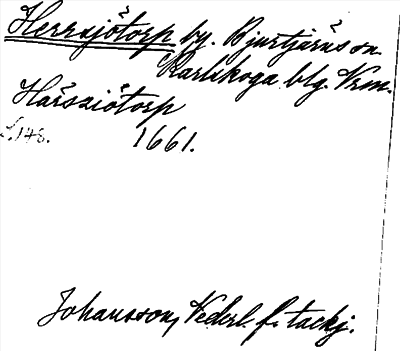 Herrsjötorp by. Bjurtjärns sn.
Karlskoga blg. Vrm.
Håssiötorp
S. 148. 1661.
Johansson, Vederl. f. tackj.